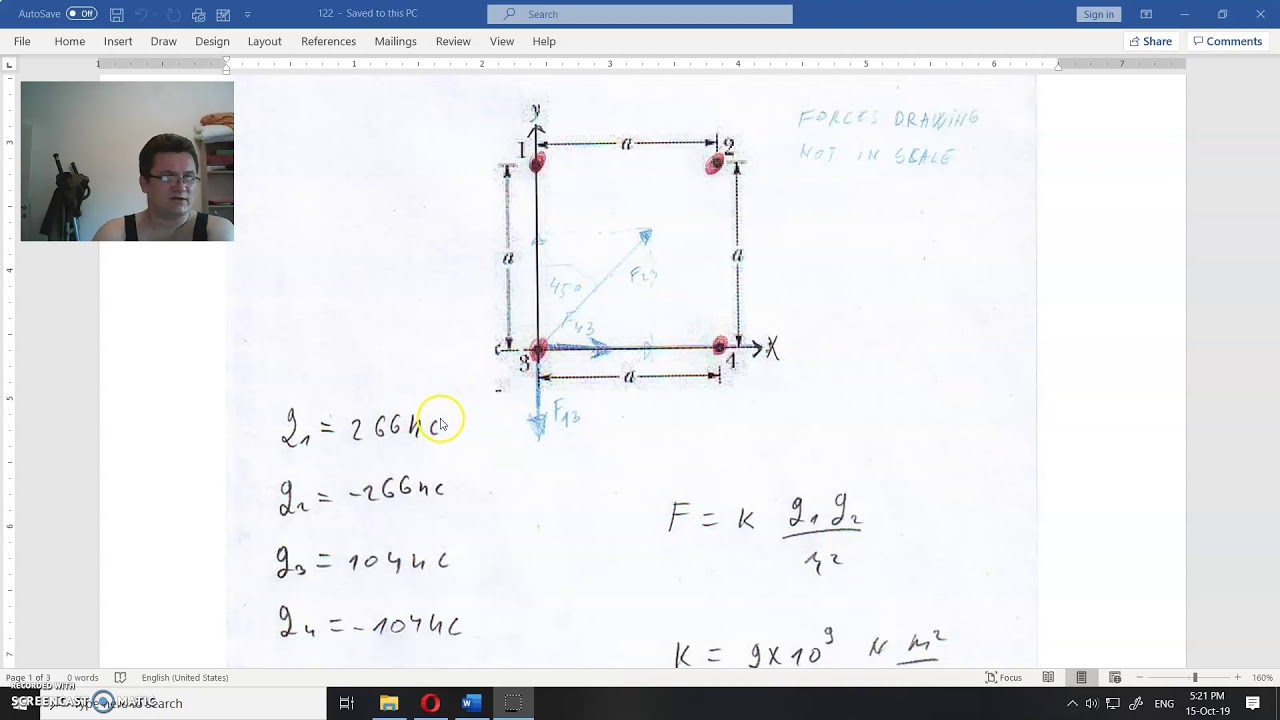 AutoSave Off
122 - Saved to this PC
Search
Sign in
File Home Insert Draw Design Layout References Mailings Review View Help
Share Comments
1 1 2 3 4 5 6 7
3
4
5
6
7
y
FORCES DRAWING
NOT IN SCALE
1 a 2
a a
45° F23
F43
3 4 X
a
F13
q1 = 266nC
q2 = -266nC
q3 = 104nC
q4 = -104nC
F = K q1 q2
r2
K = 9x10^9 N m2
Page 1 of 3 0 words English (United States)
Focus 160%
RECORDED WITH
SCREENCAST MATIC
here to search
5:21 PM
15-Oct-19